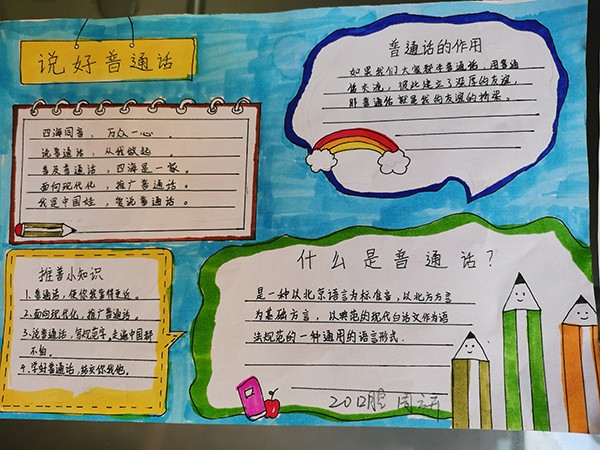 说好普通话
四海同音，万众一心。
说普通话，从我做起。
普及普通话，四海是一家。
面向现代化，推广普通话。
我是中国娃，爱说普通话。
推普小知识
1、普通话，使你我靠得更近。
2、面向现代化，推广普通话。
3、说普通话，写规范字，走遍中国都
不怕。
4、学好普通话，结交你我他。
普通话的作用
如果我们大家都来普通话，用普通
话交流，彼此建立了深厚的友谊，
那普通话就是我们友谊的桥梁。
什么是普通话？
是一种以北京语言为标准音，以北方方言
为基础方言，以典范的现代白话文作为语
法规范的一种通用的语言形式.
20口腔 周